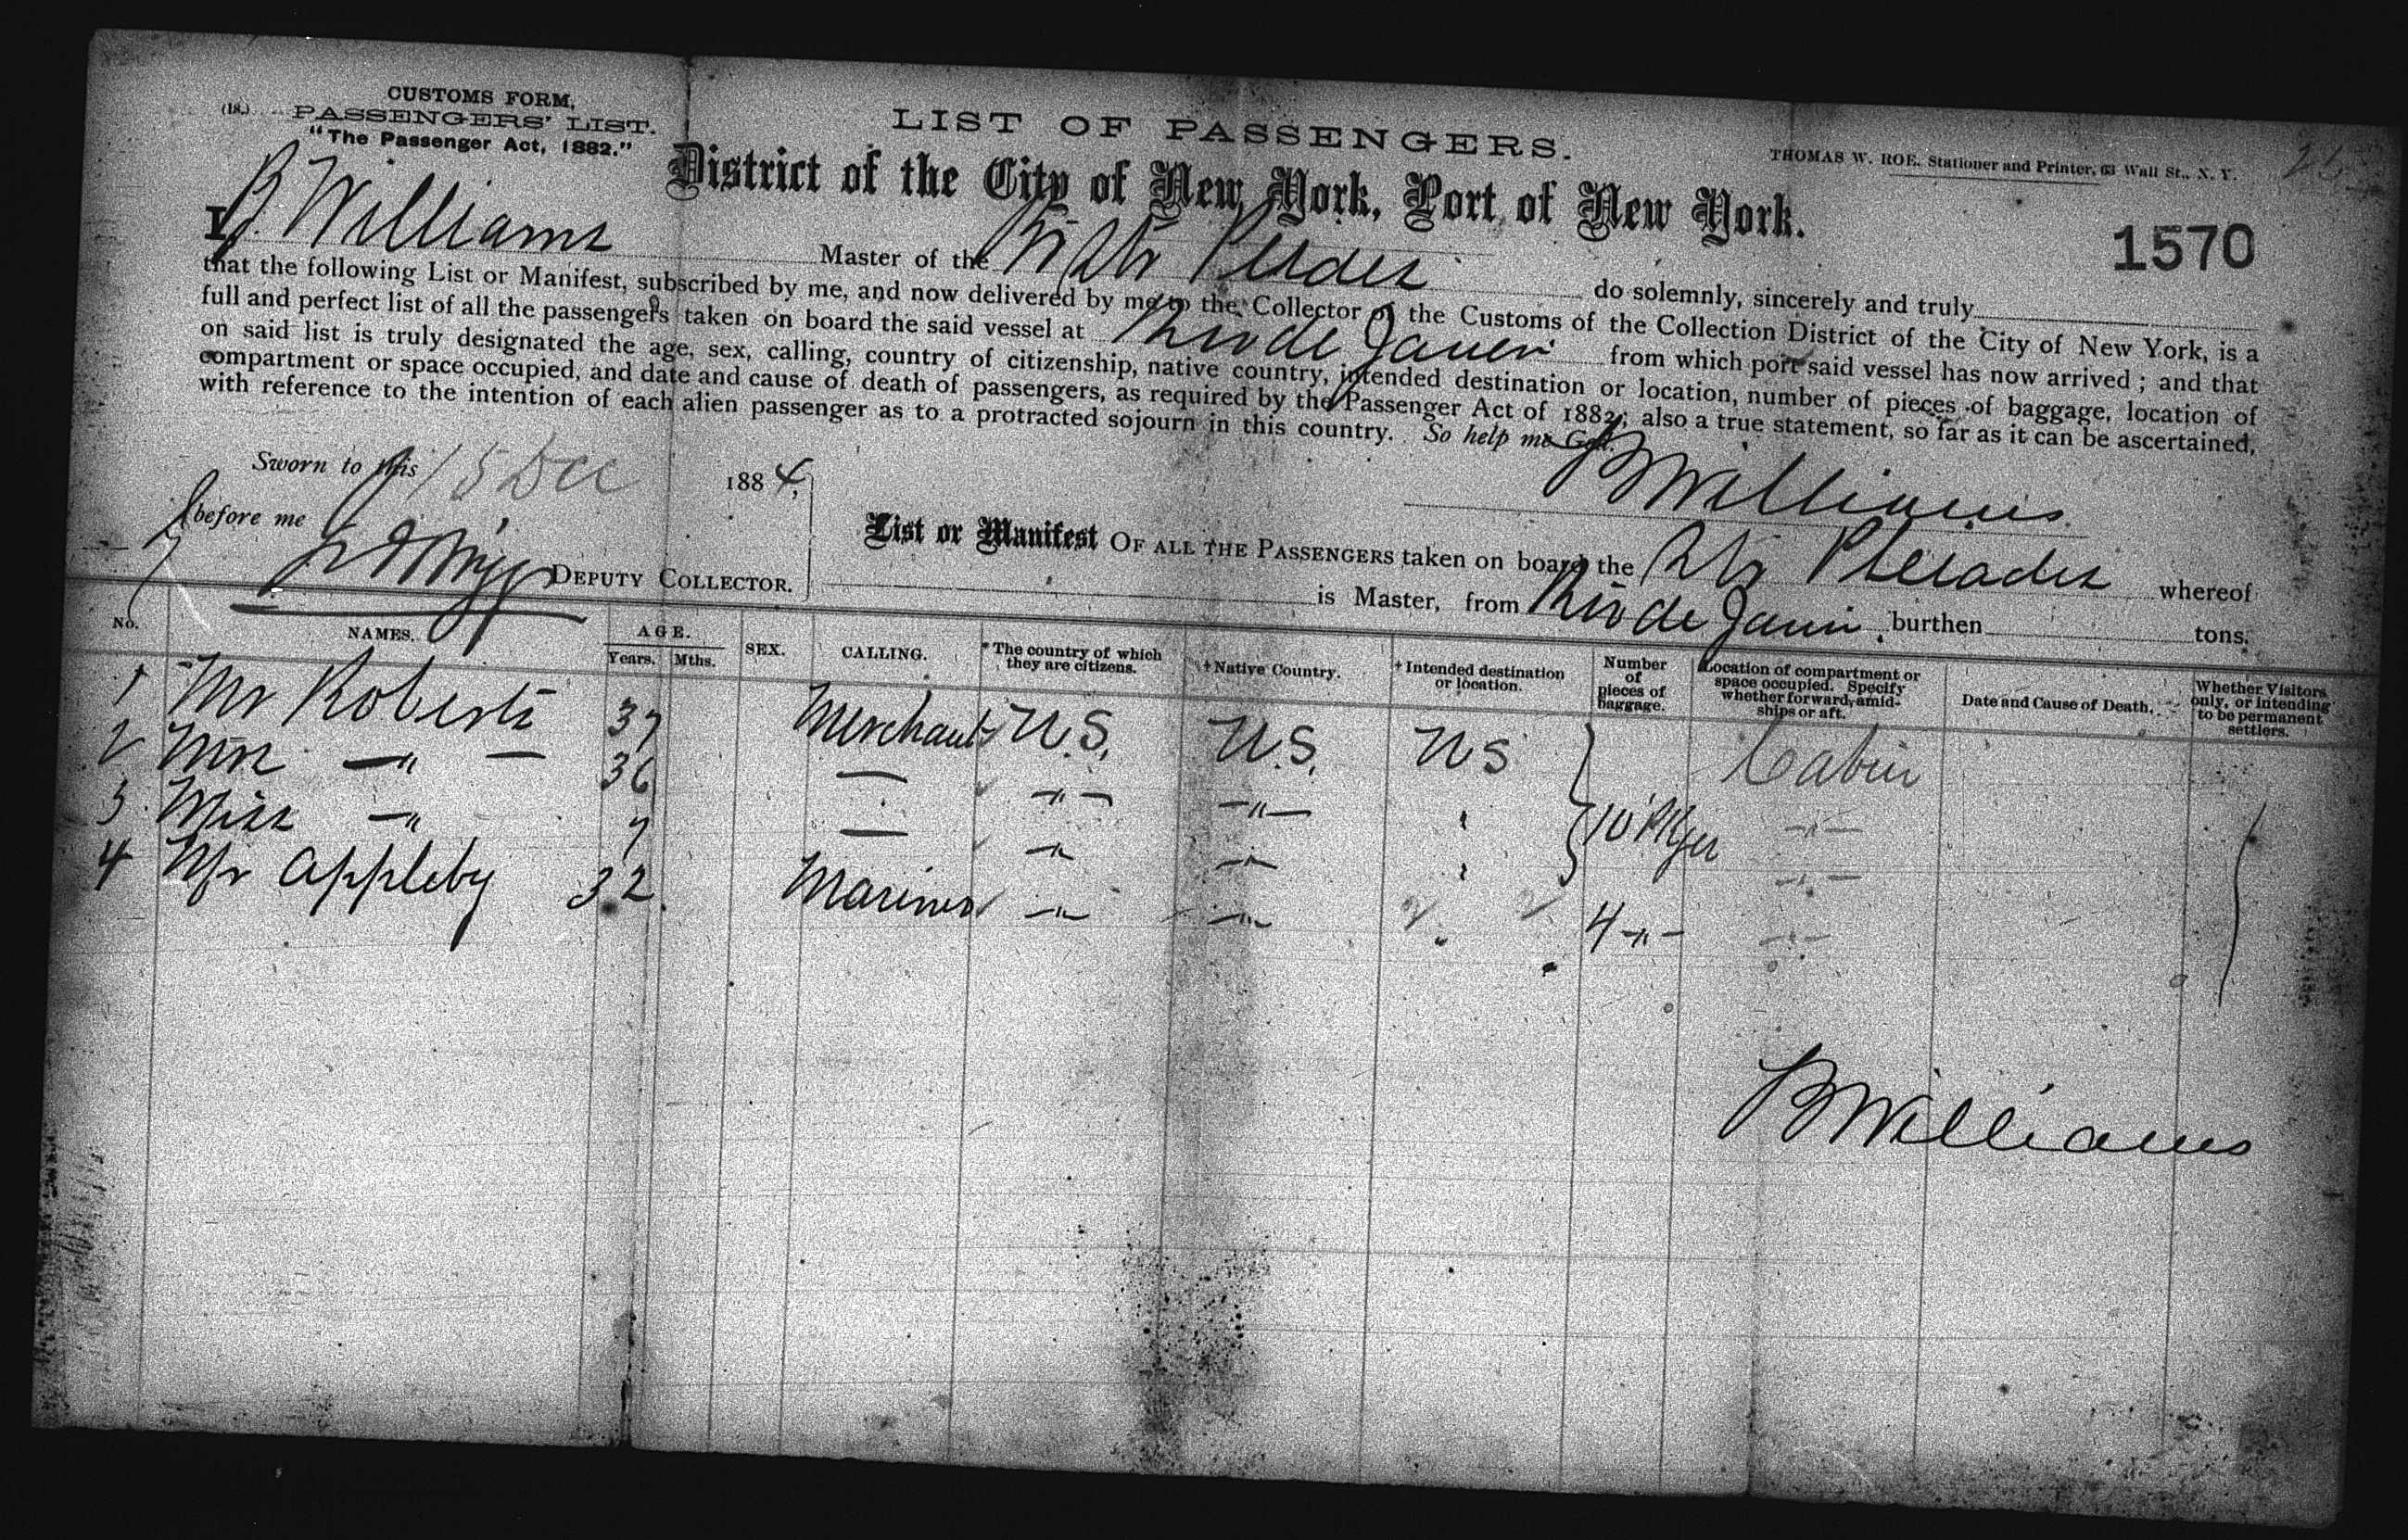 CUSTOMS FORM,
(18.) PASSENGERS' LIST.
"The Passenger Act, 1882."
LIST OF PASSENGERS.
THOMAS W. ROE, Stationer and Printer, 63 Wall St., N. Y.
District of the City of New York, Port of New York.
1570
I, B Williams Master of the Str do solemnly, sincerely and truly
that the following List or Manifest, subscribed by me, and now delivered by me to the Collector of the Customs of the Collection District of the City of New York, is a
full and perfect list of all the passengers taken on board the said vessel at Rio de Janeiro from which port said vessel has now arrived; and that
on said list is truly designated the age, sex, calling, country of citizenship, native country, intended destination or location, number of pieces of baggage, location of
compartment or space occupied, and date and cause of death of passengers, as required by the Passenger Act of 1882; also a true statement, so far as it can be ascertained,
with reference to the intention of each alien passenger as to a protracted sojourn in this country. So help me God.
B Williams
Sworn to this 15 Dec 1884,
before me
DEPUTY COLLECTOR.
List or Manifest OF ALL THE PASSENGERS taken on board the Str Pleiades whereof
is Master, from Rio de Janeiro, burthen tons.
No. NAMES. AGE. Years. Mths. SEX. CALLING. * The country of which they are citizens. † Native Country. † Intended destination or location. Number of pieces of baggage. Location of compartment or space occupied. Specify whether forward, amidships or aft. Date and Cause of Death. Whether Visitors only, or intending to be permanent settlers.
1 Mr Roberts 37 Merchant U.S. U.S. U S Cabin
2 Mrs —"— 36 — —"— —"— " —"—
3 Miss —" 7 — —"— —"— " 10 Pkges —"—
4 Mr Appleby 32 Mariner —"— —"— " 4 —"— —"—
B Williams